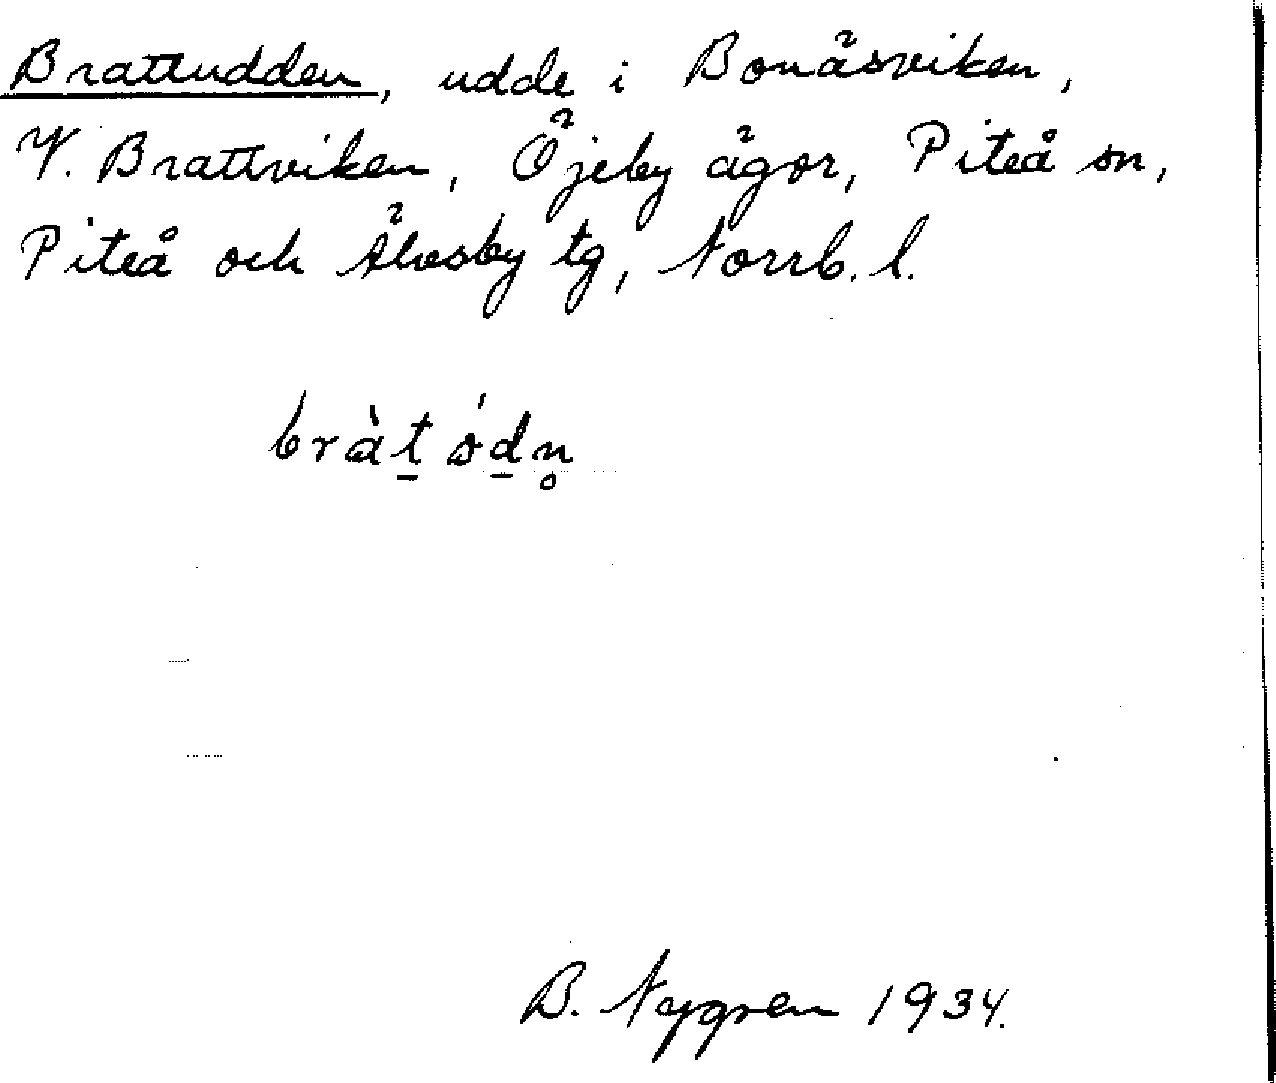 Brattudden, udde i Bonäsviken,
V. Brattviken, Öjeby ägor, Piteå sn,
Piteå och Älvsby tg, Norrb. l.
bràt̠ ód̠n̥
B. Nygren 1934.